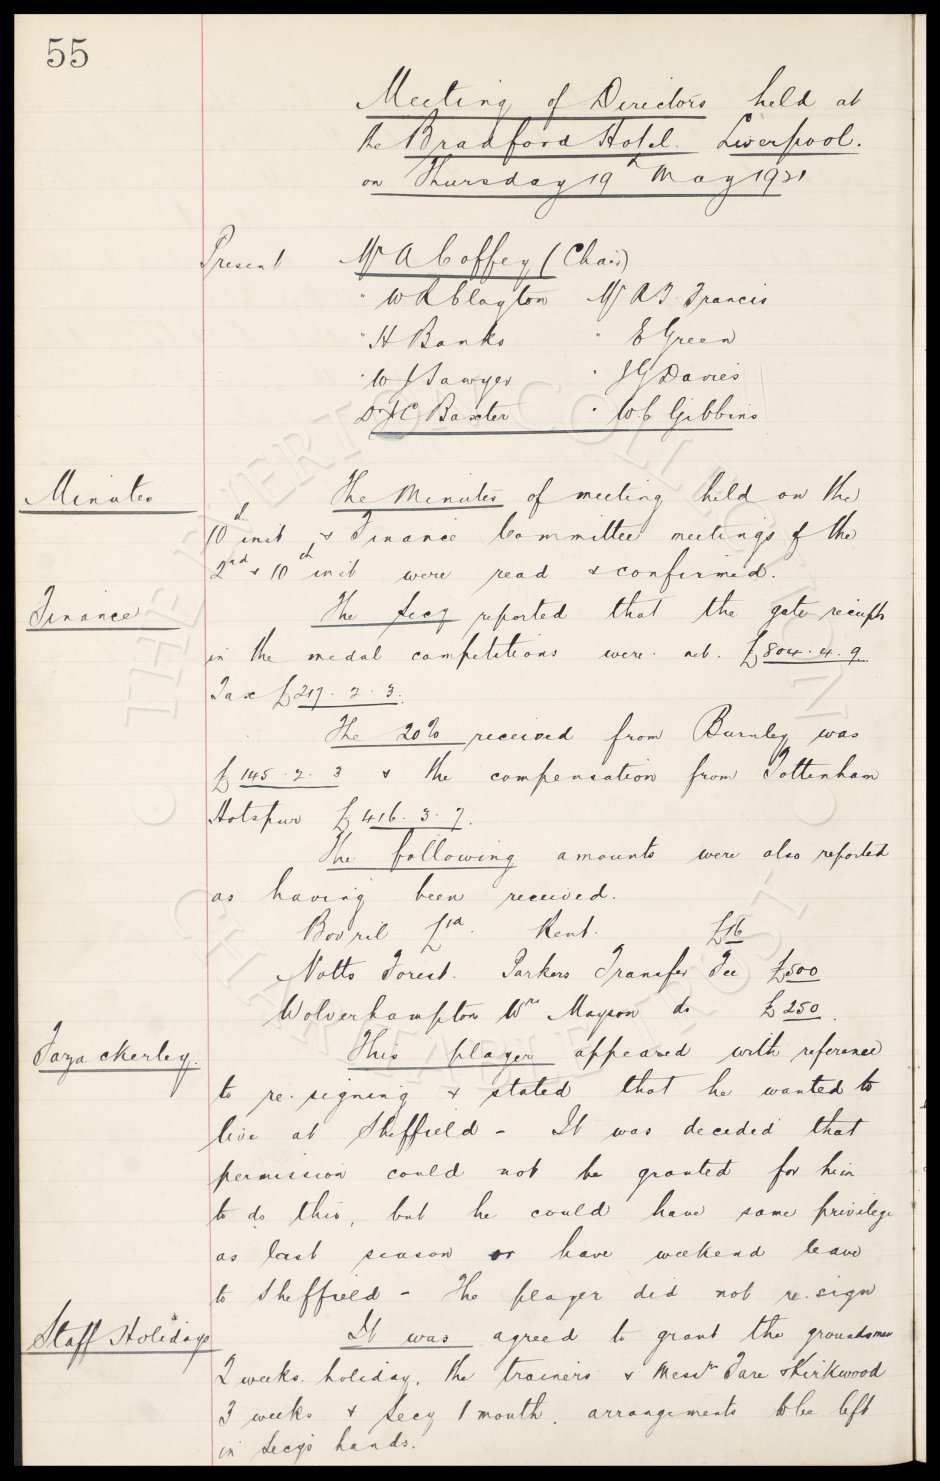 55
Meeting of Directors held at
the Bradford Hotel. Liverpool.
on Thursday 19th May 1921
Present Mr A Coffey (Chair)
" W R Clayton Mr A T Francis
" H Banks " E Green
" W J Sawyer " J G Davies
Dr J C Baxter " W C Gibbins
Minutes The Minutes of meeting held on the
10th inst & Finance Committee meetings of the
2nd & 10th inst were read & confirmed.
Finance The Secy reported that the gate receipts
in the medal competitions were. net. £804. 4. 9
Tax £217. 2. 3.
The 20% received from Burnley was
£145. 2. 3 & the compensation from Tottenham
Hotspur £416. 3. 7.
The following amounts were also reported
as having been received.
Bovril Ltd. Rent. £16
Notts Forest. Parkers Transfer Fee £500
Wolverhampton Wrs Mayson do £250.
Fazackerley. This player appeared with reference
to re-signing & stated that he wanted to
live at Sheffield - It was decided that
permission could not be granted for him
to do this, but he could have same privilege
as last season or have weekend leave
to Sheffield - The player did not re-sign
Staff Holidays It was agreed to grant the groundsmen
2 weeks. holiday. the trainers & Messrs Fare & Kirkwood
3 weeks & Secy 1 month. arrangements to be left
in Secys hands.
THE EVERTON COLLECTION
CHARITABLE TRUST